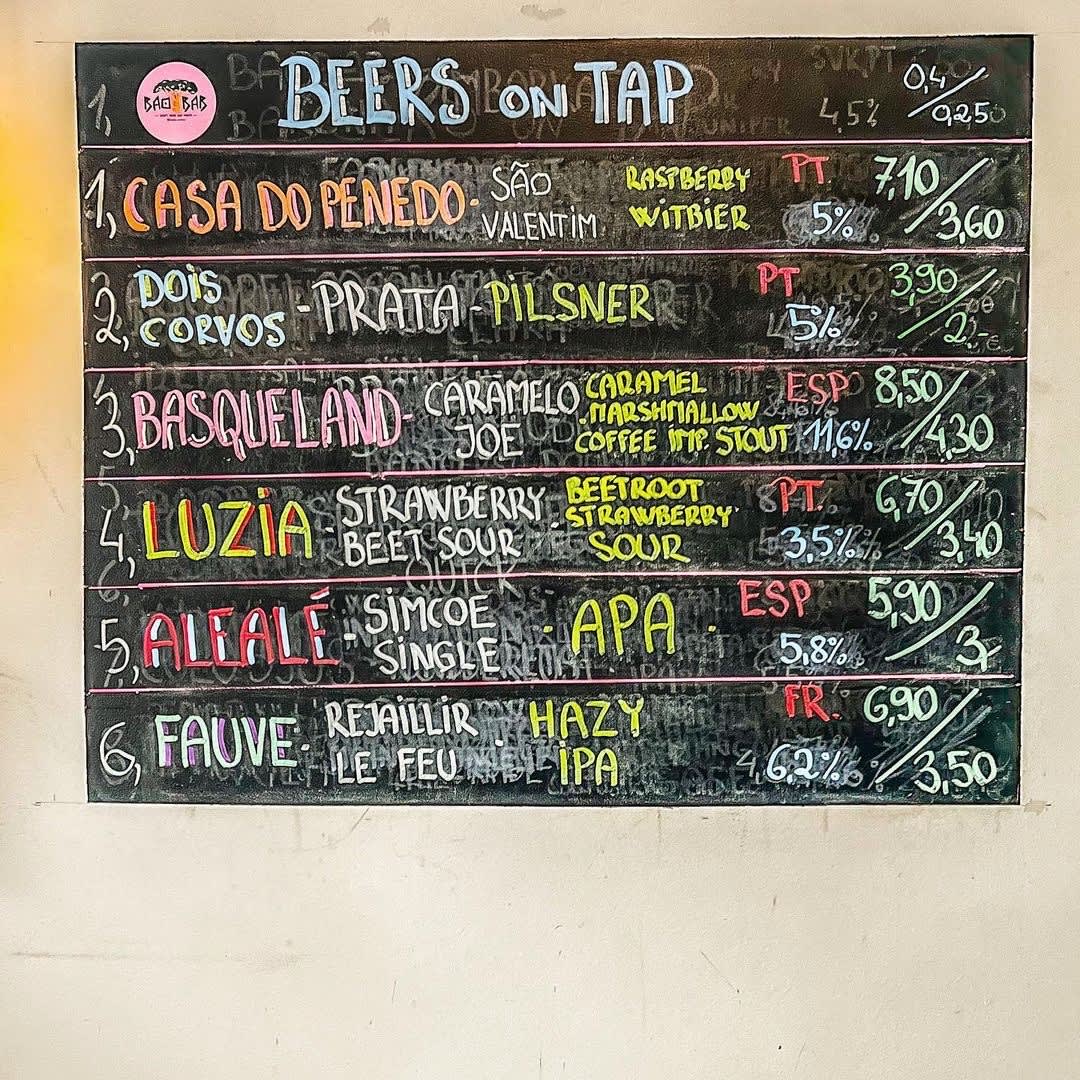 BAOBAB
BEERS ON TAP
0,4/0,25
1, CASA DO PENEDO - SÃO VALENTIM RASPBERRY WITBIER PT. 5% 7,10/3,60
2, DOIS CORVOS - PRATA - PILSNER PT 5% 3,90/2,-
3, BASQUELAND - CARAMELO JOE CARAMEL MARSHMALLOW COFFEE IMP. STOUT ESP 11,6% 8,50/4,30
4, LUZIA - STRAWBERRY BEET SOUR - BEETROOT STRAWBERRY SOUR PT. 3,5% 6,70/3,40
5, ALEALÉ - SIMCOE SINGLE - APA - ESP 5,8% 5,90/3,-
6, FAUVE - REJAILLIR LE FEU - HAZY IPA FR. 6,2% 6,90/3,50